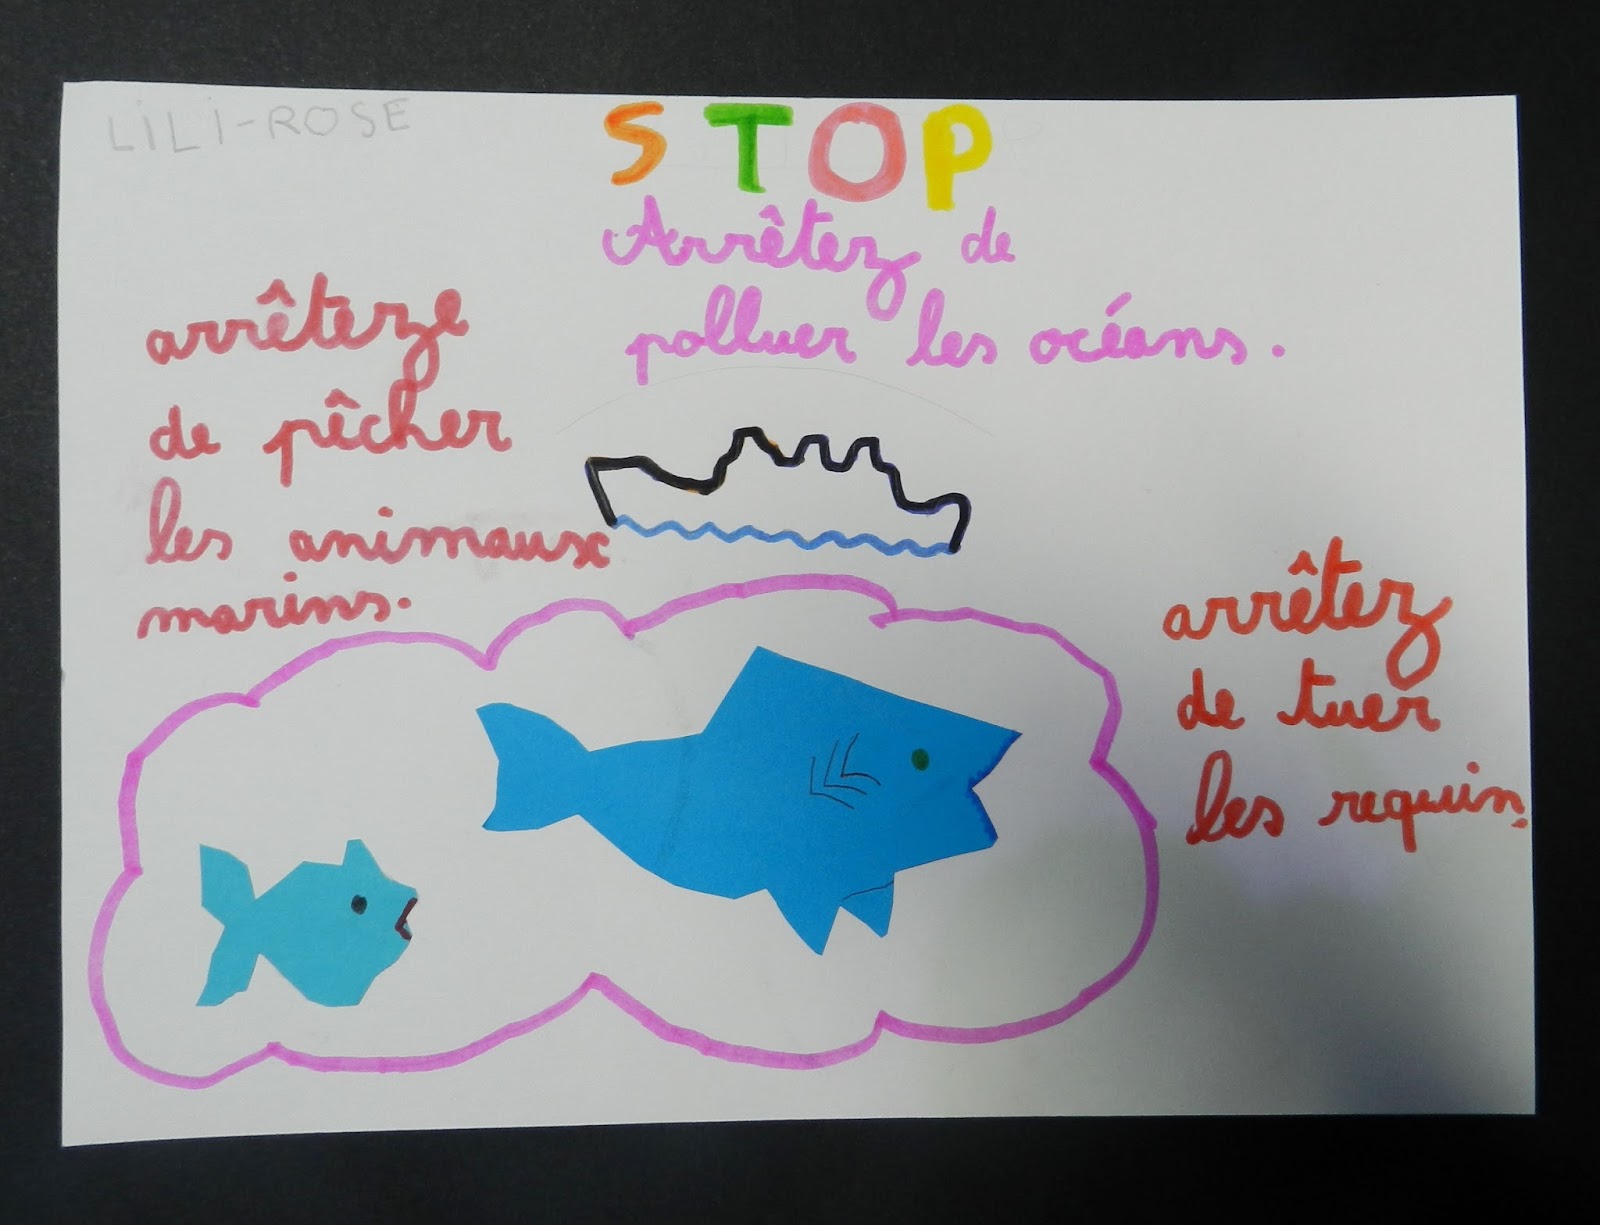 LiLi-ROSE
STOP
Arrêtez de
polluer les océans.
arrêteze
de pêcher
les animaux
marins.
arrêtez
de tuer
les requin.